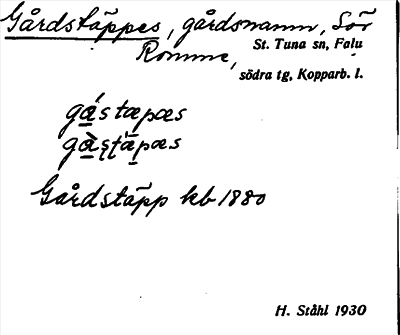 Gårdstäppes, gårdsnamn, Sör
Romme, St. Tuna sn, Falu
södra tg, Kopparb. l.
gástæpæs
Gårdstäpp kb 1880
H. Ståhl 1930